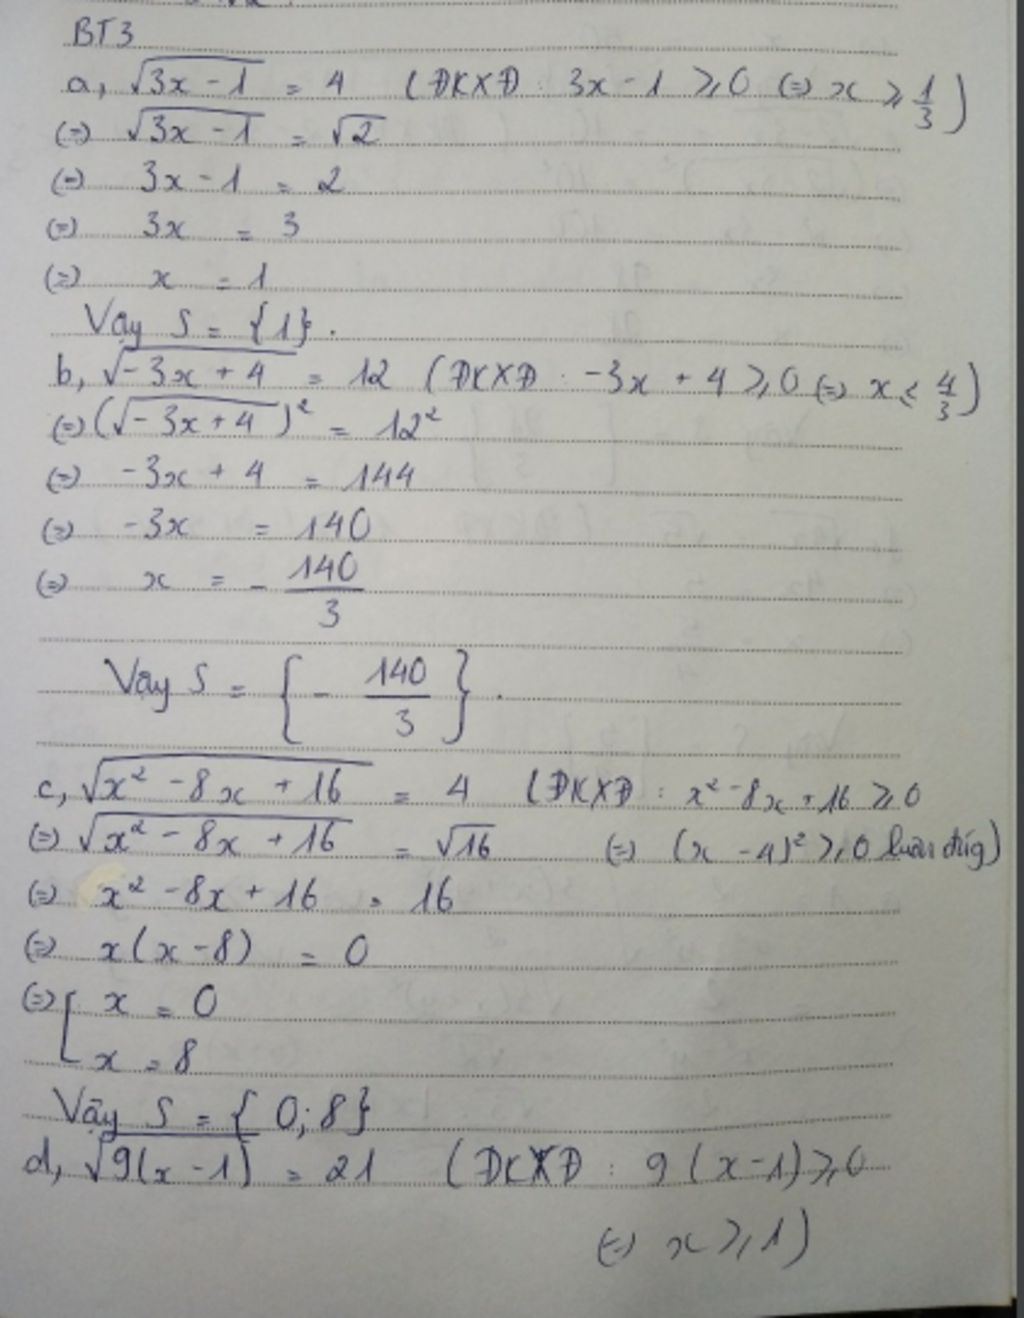 BT3
a, √(3x - 1) = 4 (ĐKXĐ : 3x - 1 ≥ 0 (=) x ≥ 1/3)
(=) √(3x - 1) = √2
(=) 3x - 1 = 2
(=) 3x = 3
(=) x = 1
Vậy S = {1}.
b, √(-3x + 4) = 12 (ĐKXĐ : -3x + 4 ≥ 0 (=) x ≤ 4/3)
(=) (√(-3x + 4))² = 12²
(=) -3x + 4 = 144
(=) -3x = 140
(=) x = - 140/3
Vậy S = { - 140/3 }.
c, √(x² - 8x + 16) = 4 (ĐKXĐ : x² - 8x + 16 ≥ 0
(=) √(x² - 8x + 16) = √16 (=) (x - 4)² ≥ 0 luôn đúng)
(=) x² - 8x + 16 = 16
(=) x(x - 8) = 0
(=) [ x = 0
x = 8
Vậy S = { 0; 8}
d, √(9(x - 1)) = 21 (ĐKXĐ : 9(x - 1) ≥ 0
(=) x ≥ 1)